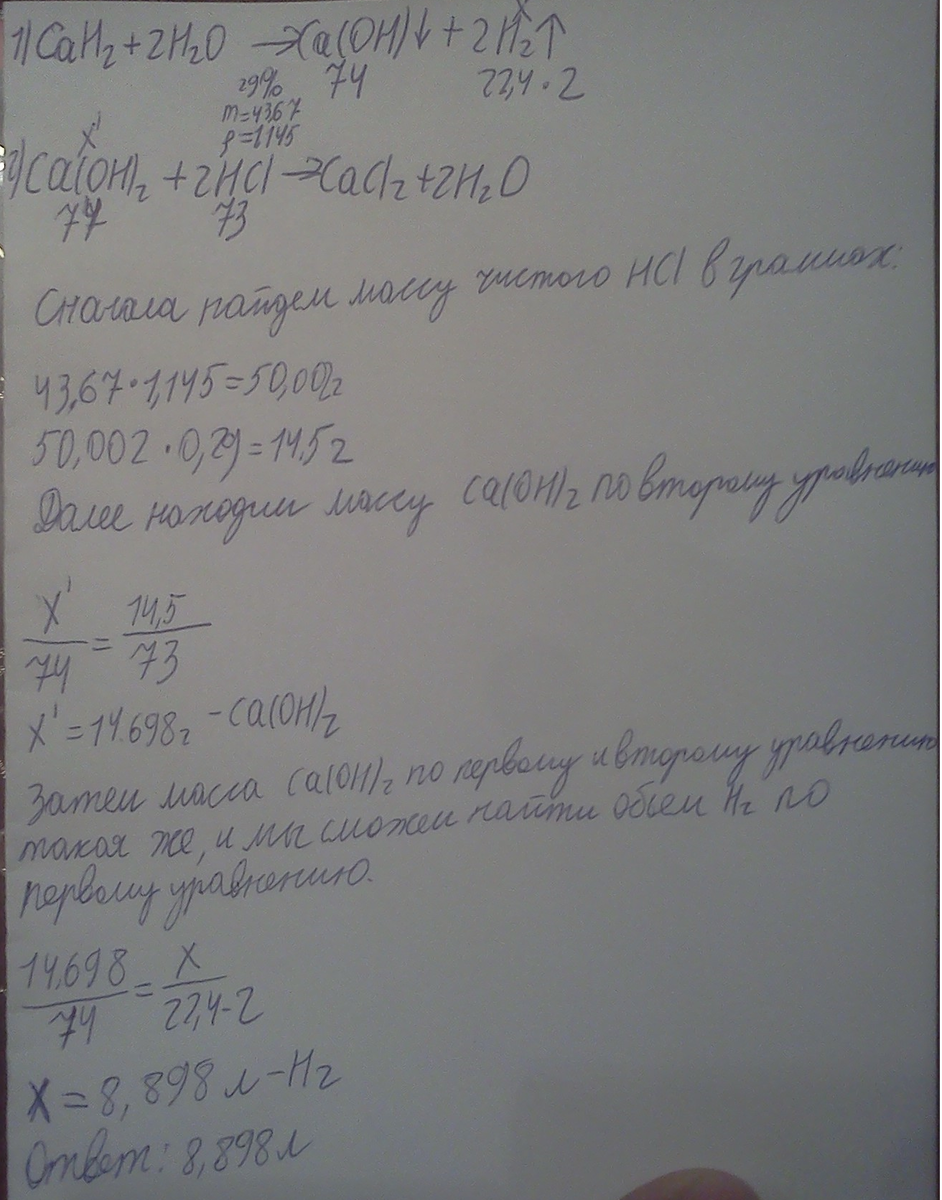 x
1) CaH₂ + 2H₂O → Ca(OH)↓ + 2H₂↑
29% 74 22,4 · 2
m=43,67
ρ=1,145
x'
2) Ca(OH)₂ + 2HCl → CaCl₂ + 2H₂O
74 73
Сначала найдем массу чистого HCl в граммах:
43,67 · 1,145 = 50,00г
50,002 · 0,29 = 14,5г
Далее находим массу Ca(OH)₂ по второму уравнению
x'/74 = 14,5/73
x' = 14.698г - Ca(OH)₂
Затем масса Ca(OH)₂ по первому и второму уравнению
такая же, и мы сможем найти обьем H₂ по
первому уравнению.
14,698/74 = x/22,4·2
x = 8,898 л - H₂
Ответ: 8,898л